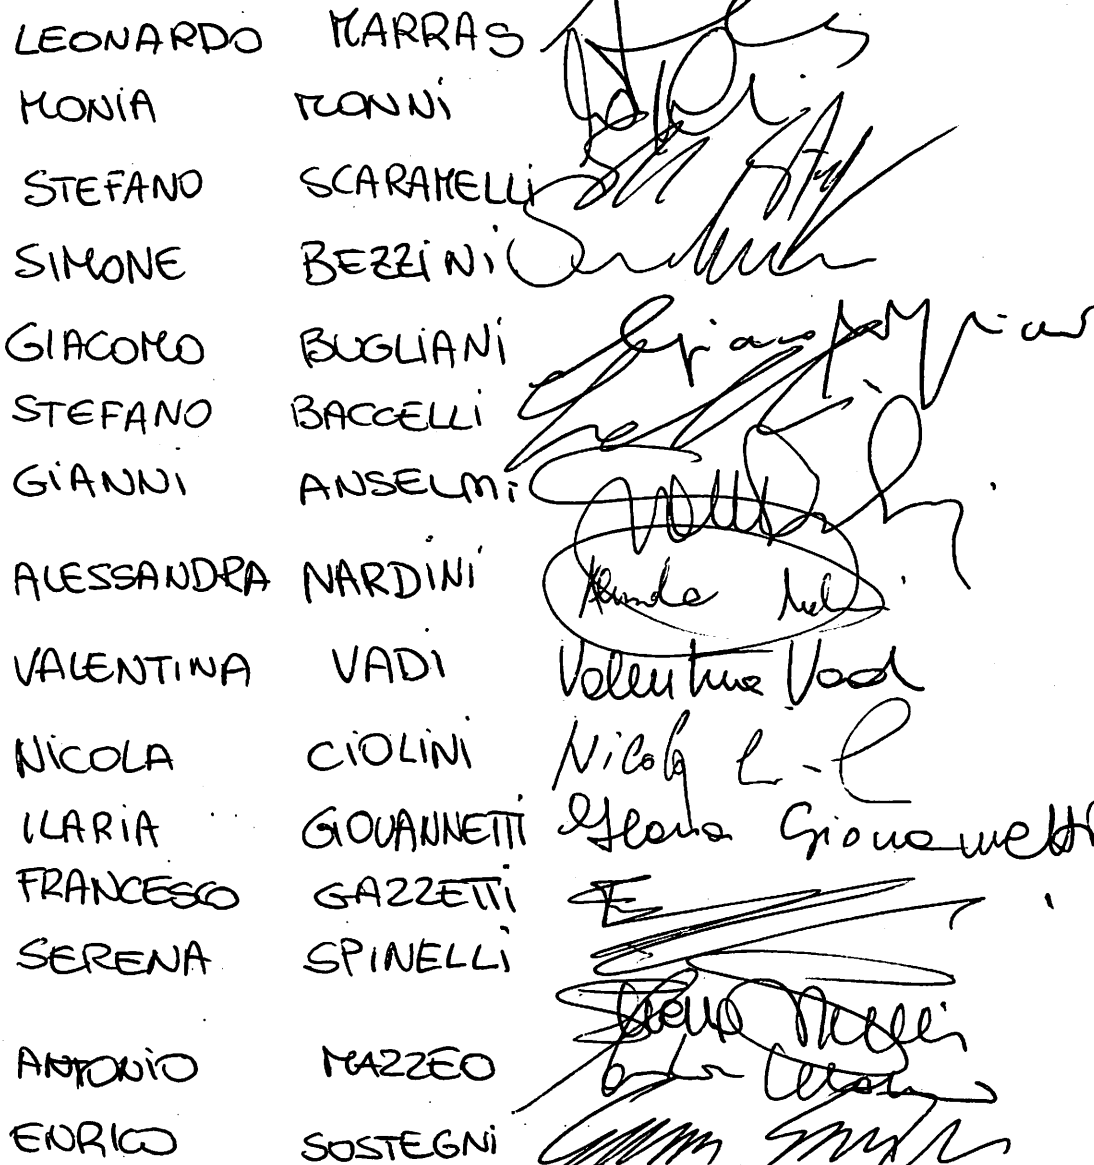 LEONARDO MARRAS
MONIA MONNI
STEFANO SCARAMELLI
SIMONE BEZZINI
GIACOMO BUGLIANI
STEFANO BACCELLI
GIANNI ANSELMI
ALESSANDRA NARDINI
VALENTINA VADI Valentina Vadi
NICOLA CIOLINI Nicola
ILARIA GIOVANNETTI Ilaria Giovannetti
FRANCESCO GAZZETTI
SERENA SPINELLI Serena Spinelli
ANTONIO MAZZEO
ENRICO SOSTEGNI